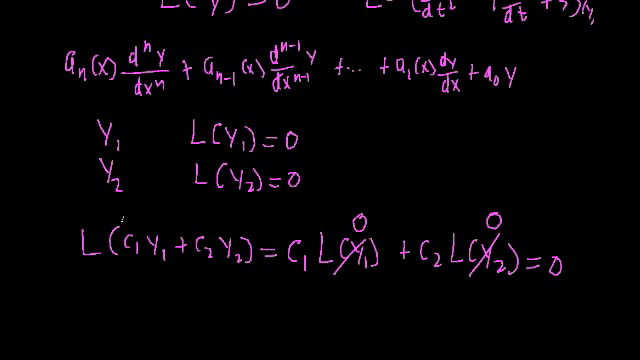 L(y) = 0 L = ( /dt² /dt + 3)y
aₙ(x) dⁿy/dxⁿ + aₙ₋₁(x) dⁿ⁻¹y/dxⁿ⁻¹ + ... + a₁(x) dy/dx + a₀ y
Y₁ L(Y₁) = 0
Y₂ L(Y₂) = 0
L(c₁Y₁ + c₂Y₂) = c₁ L(Y₁) 0 + c₂ L(Y₂) 0 = 0